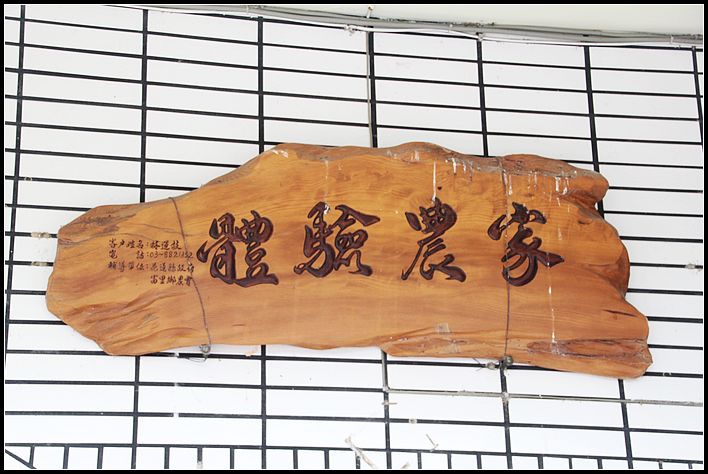 體驗農家
農戶姓名：林運枝
電話：03-8821152
輔導單位：花蓮縣政府
富里鄉農會